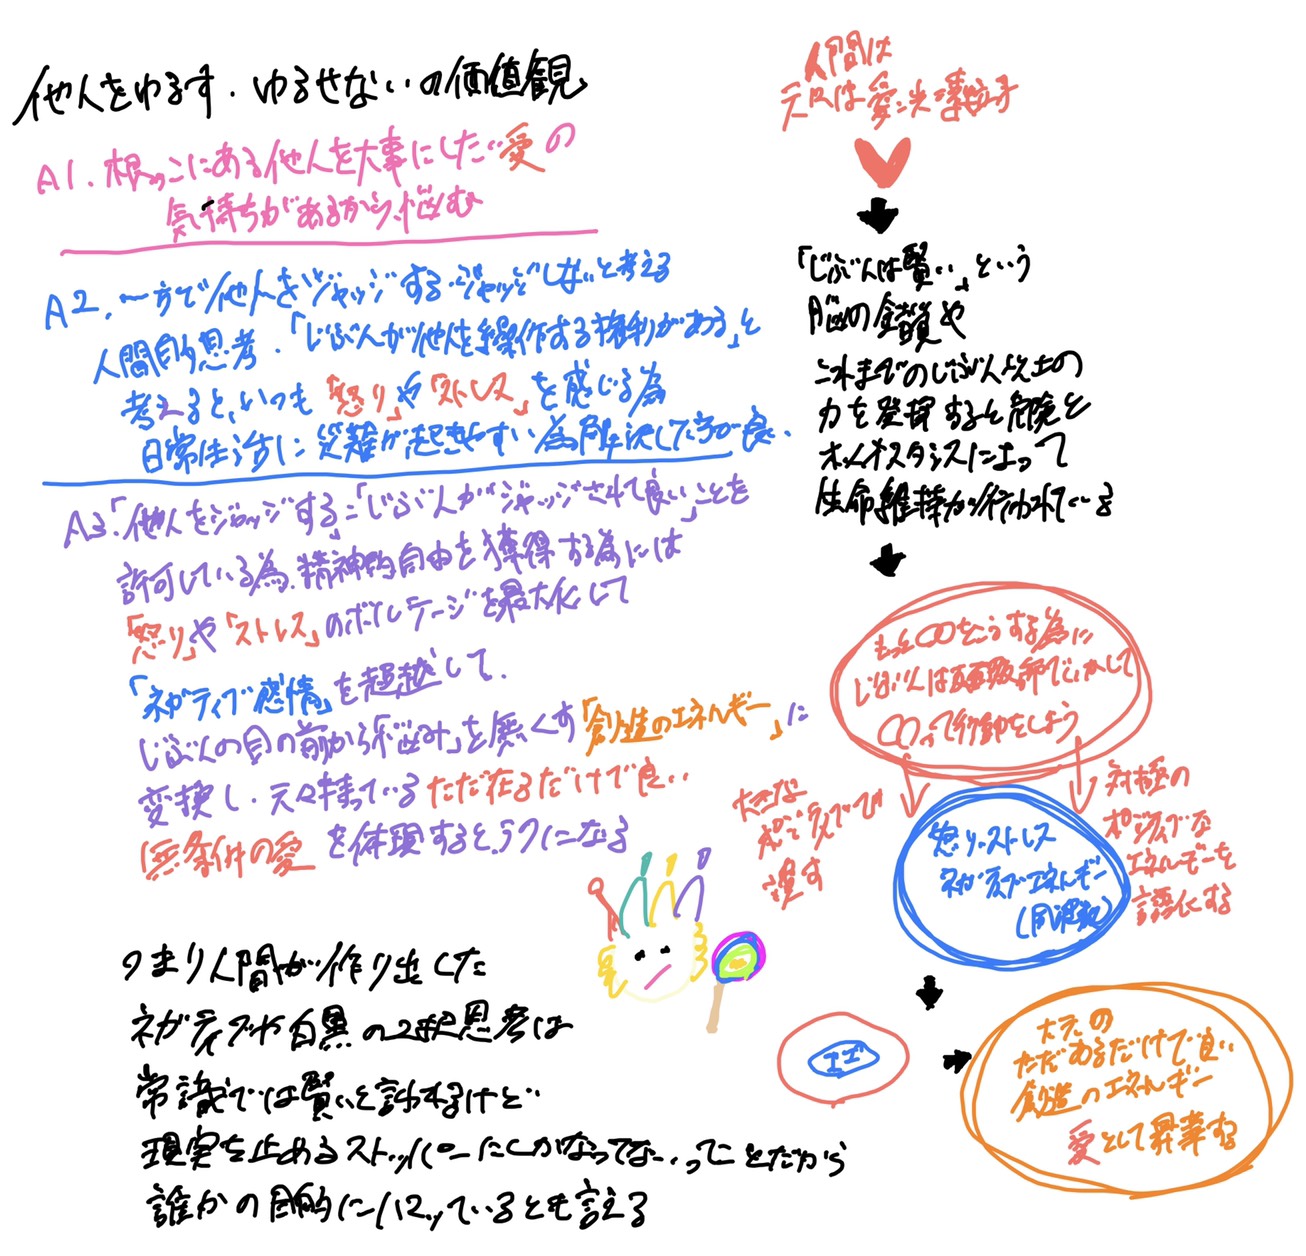 他人をゆるす・ゆるせないの価値観
A1. 根っこにある他人を大事にしたい愛の
気持ちがあるから、悩む
A2. 一方で他人をジャッジする・ジャッジしないと考える
人間的思考.「じぶんが他人を操作する権利がある」と
考えると、いつも「怒り」や「ストレス」を感じる為
日常生活に災難が起きやすい為解決した方が良い.
A3.「他人をジャッジする」=「じぶんがジャッジされて良い」ことを
許可している為、精神的自由を獲得する為には
「怒り」や「ストレス」のボルテージを最大化して
「ネガティブ感情」を超越して.
じぶんの目の前から「悩み」を無くす「創造のエネルギー」に
変換し、元々持っているただ在るだけで良い
無条件の愛を体現するとラクになる
つまり人間が作り出した
ネガティブや白黒の2択思考は
常識では賢いと言われるけど
現実を止めるストッパーにしかなってないってことだから
誰かの目的にハマっているとも言える
人間は
元々は愛の光の集粒子
「じぶんは賢い」という
脳の錯覚や
これまでのじぶん以上の
力を発揮すると危険と
ホメオスタシスによって
生命維持が行われている
もっと〇〇をこうする為に
じぶんは
〇〇って行動をしよう
大きな
ポジティブで
対極の
ポジティブな
エネルギーを
怒り・ストレス
ネガティブエネルギー
(周波数)
エゴ
大元の
ただあるだけで良い
創造のエネルギー
愛として昇華する